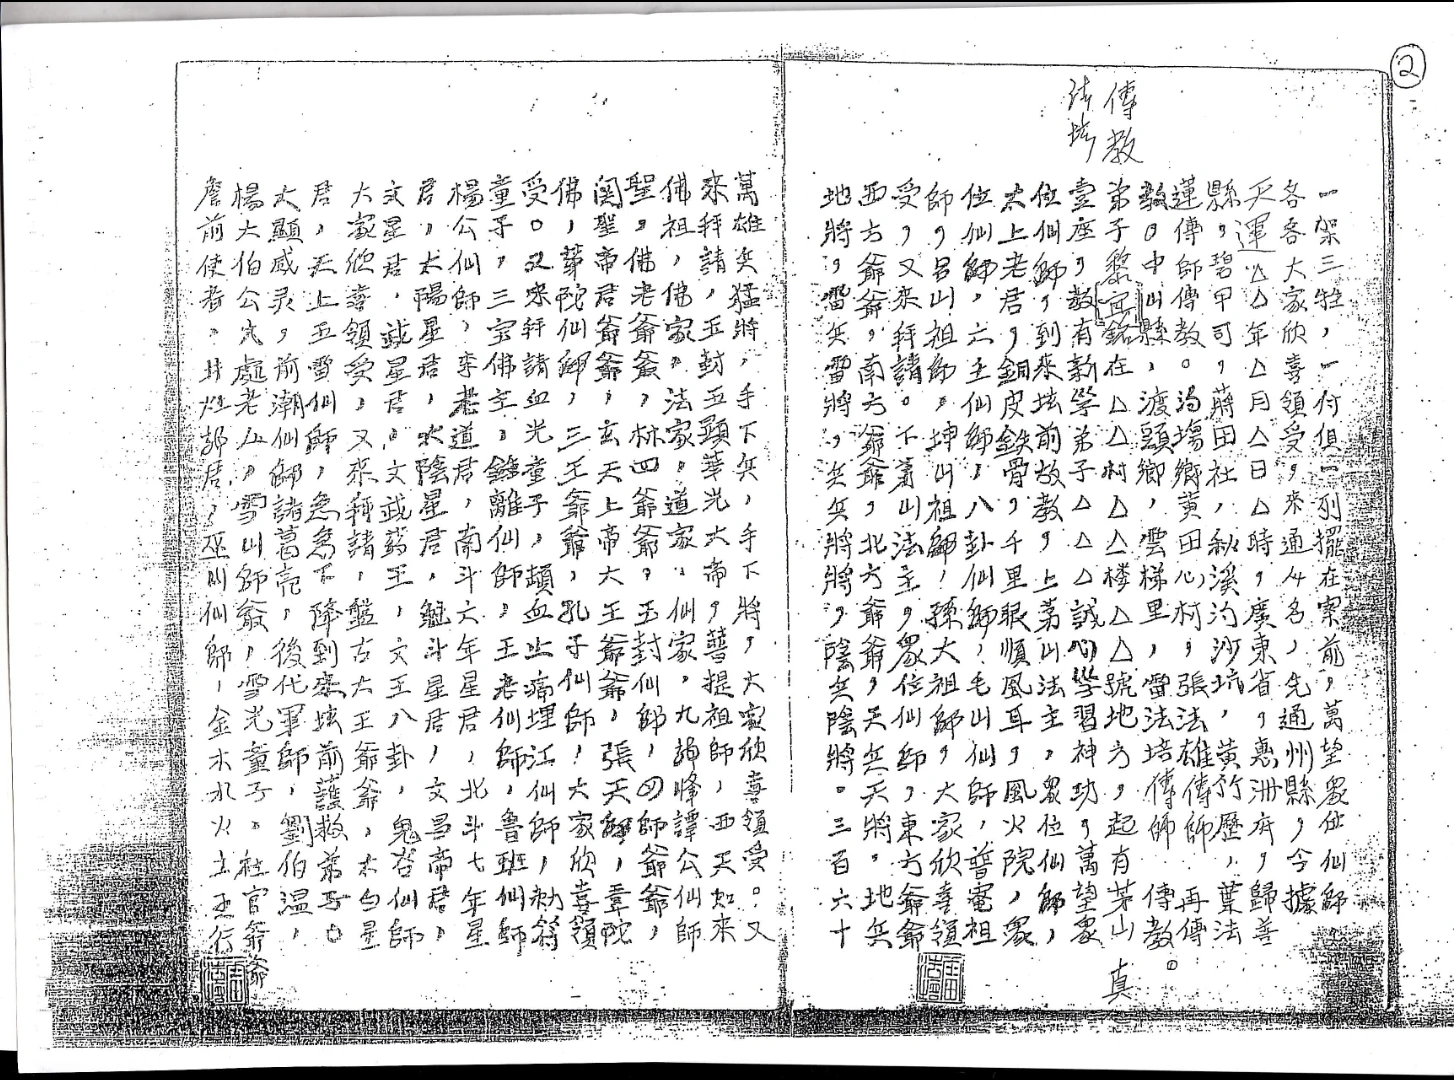 ②
傳教
一架三牲，一付俱一列擺在案前，萬望眾位仙師
各各大家欣喜領受，來通人名，先通州縣，今據
天運△△年△月△日△時，廣東省，惠洲府，歸善
縣，碧甲司，蔣田社，秋溪沟沙坑，黃竹歷，葉法
蓮傳師傳教。沟塲鄉黄田心村，張法雄傳師 再傳
教。中山縣，渡頭鄉，雲梯里，雷法培傳師 傳教。
弟子黎 銘在△△村△△楼△△號地方，起有茅山 真
壹座，教有新學弟子△△△誠心學習神功，萬望眾
位仙師，到來坛前教教，上茅山法主，眾位仙師，
太上老君，銅皮鉄骨，千里眼順風耳，風火院，眾
位仙師，六壬仙師，八卦仙師，毛山仙師，普庵祖
師，吕山祖師，坤山祖師，孫大祖師，大家欣喜領
受，又來拜請。不 山法主，眾位仙師，東方爺爺
西方爺爺，南方爺爺，北方爺爺，天兵天將。地兵
地將，雷兵雷將，兵兵將將，陰兵陰將。三百六十
萬雄兵猛將，手下兵，手下將，大家欣喜領受。又
來拜請，五封五顯華光大帝，菩提祖師，西天如來
佛祖，佛家。法家。道家。仙家。九 峰譚公仙師
聖。佛老爺爺，林四爺爺。玉封仙師，四師爺爺，
関聖帝君爺爺，玄天上帝大王爺爺，張天師，韋陀
佛，華陀仙師，三王爺爺，孔子仙師，大家欣喜領
受。又來拜請血光童子， 血止痛埋江仙師，勅符
童子，三宝佛主，鐘離仙師，王老仙師，魯班仙師
楊公仙師，李老道君，南斗六年星君，北斗七年星
君，太陽星君，太陰星君，魁斗星君，文昌帝君，
文星君，武星君。文武 王，文王八卦，鬼谷仙師
大家欣喜領受，又來拜請，盤古大王爺爺，太白星
君，天上五雷仙師，急急下降到來坛前護救弟子。
大顯威灵，前潮仙師諸葛亮，後代軍師，劉伯温，
楊大伯公 處老 ，雪山師爺，雪光童子。社官爺爺
前使者。井灶 君，巫 仙師，金木水火土五行